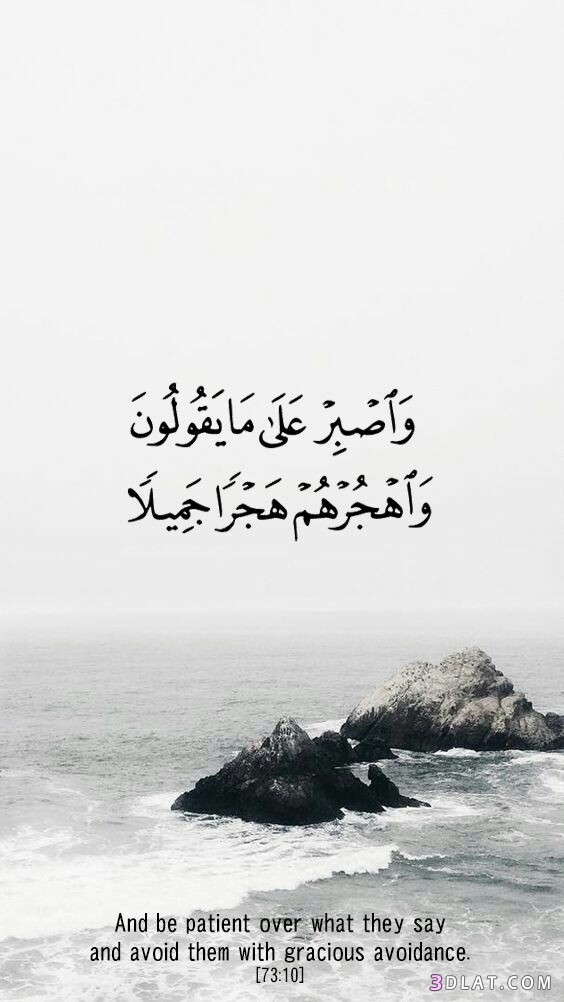 وَٱصۡبِرۡ عَلَىٰ مَا يَقُولُونَ
وَٱهۡجُرۡهُمۡ هَجۡرٗا جَمِيلٗا
And be patient over what they say
and avoid them with gracious avoidance.
[73:10]
3DLAT.COM